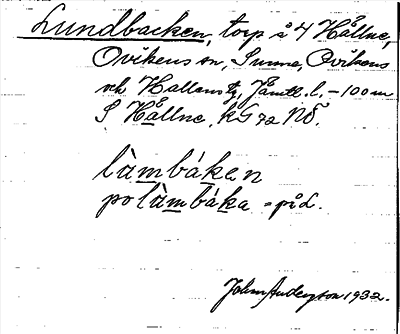 Lundbacken, torp å 4 Hållne,
Ovikens sn, Sunne, Ovikens
och Hallens tg, Jämtl. l. – 100 m
S Hållne. kG 72 NÖ.
làmbáken
po làmbáka = på L.
John Anderzson 1932.